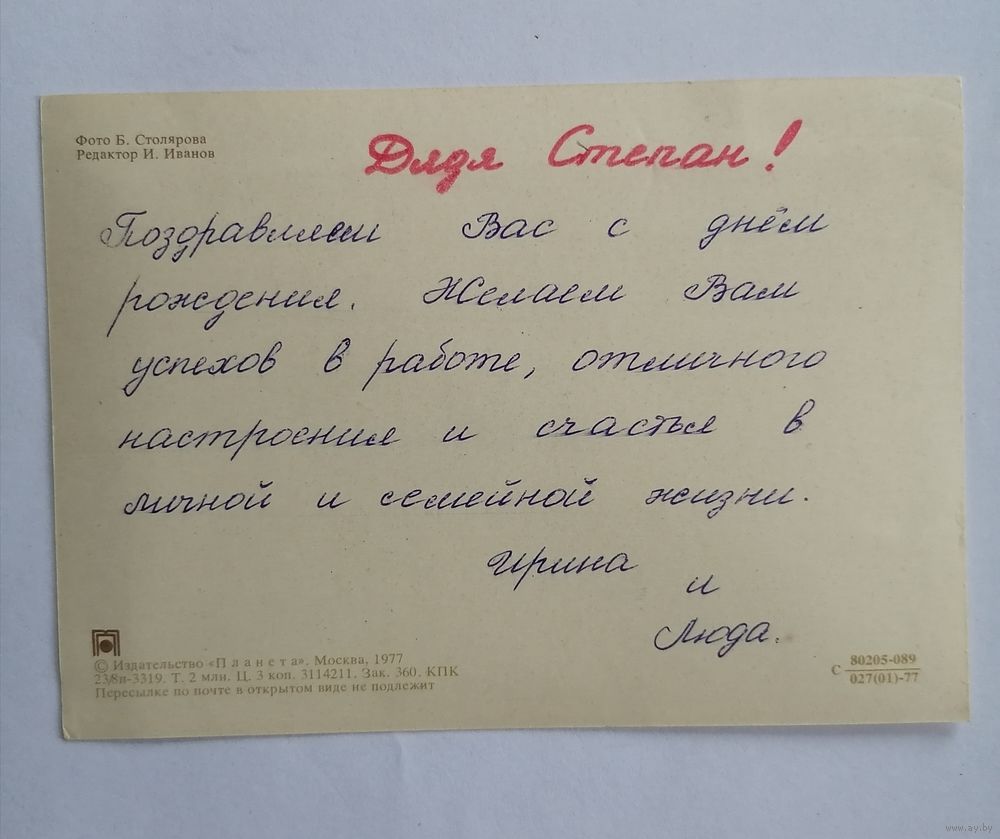 Фото Б. Столярова
Редактор И. Иванов
Дядя Степан!
Поздравляем Вас с днём
рождения. Желаем Вам
успехов в работе, отличного
настроения и счастья в
личной и семейной жизни.
Ирина
и
Люда.
© Издательство «Планета». Москва, 1977
23/8п-3319. Т. 2 млн. Ц. 3 коп. 3114211. Зак. 360. КПК
Пересылке по почте в открытом виде не подлежит
С 80205-089
027(01)-77
www.ay.by